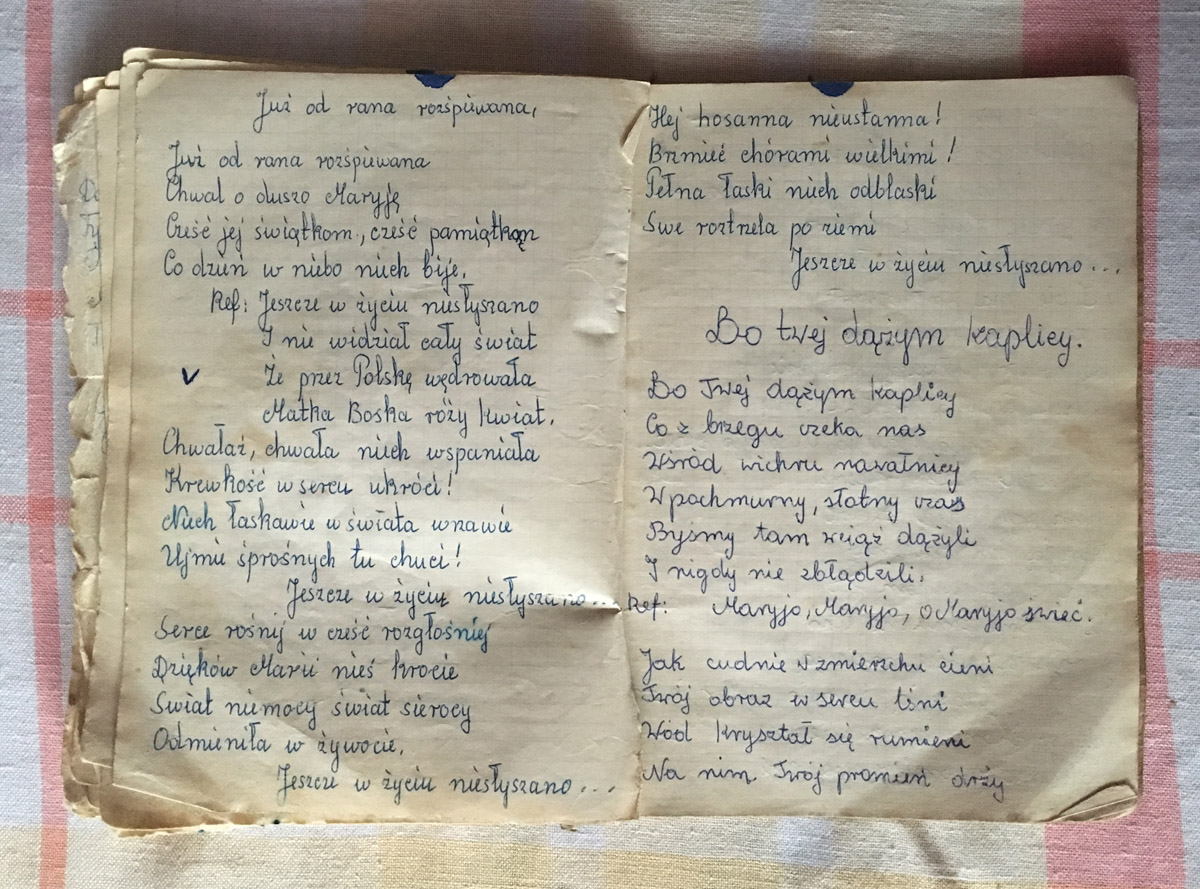 Już od rana rozśpiwana,
Już od rana rozśpiewana
Chwal o duszo Maryję
Cześć jej świątkom, cześć pamiątkom
Co dzień w niebo niech bije.
Ref: Jeszcze w życiu niesłyszano
I nie widział cały świat
V Że przez Polskę wędrowała
Matka Boska róży kwiat.
Chwałaż, chwała niech wspaniała
Krewkość w sercu ukróci!
Niech łaskawie w świata wrzawie
Ujmie sprośnych tu chuci!
Jeszcze w życiu niesłyszano...
Serce rośnij w cześć rozgłośniej
Dzięków Marii nieś krocie
Świat niemocy świat sierocy
Odmieniła w żywocie.
Jeszcze w życiu niesłyszano...
Hej hosanna nieustanna!
Brzmieć chórami wielkimi!
Pełna łaski niech odblaski
Swe roztrzela po ziemi
Jeszcze w życiu niesłyszano...
Do twej dążym kaplicy.
Do Twej dążym kaplicy
Co z brzegu czeka nas
Wśród wichru nawałnicy
W pochmurny, słotny czas
Byśmy tam wciąż dążyli
I nigdy nie zbłądzili.
Ref: Maryjo, Maryjo, o Maryjo świeć.
Jak cudnie w zmierzchu cieni
Twój obraz w sercu lśni
Wód kryształ się rumieni
Na nim Twój promień drży